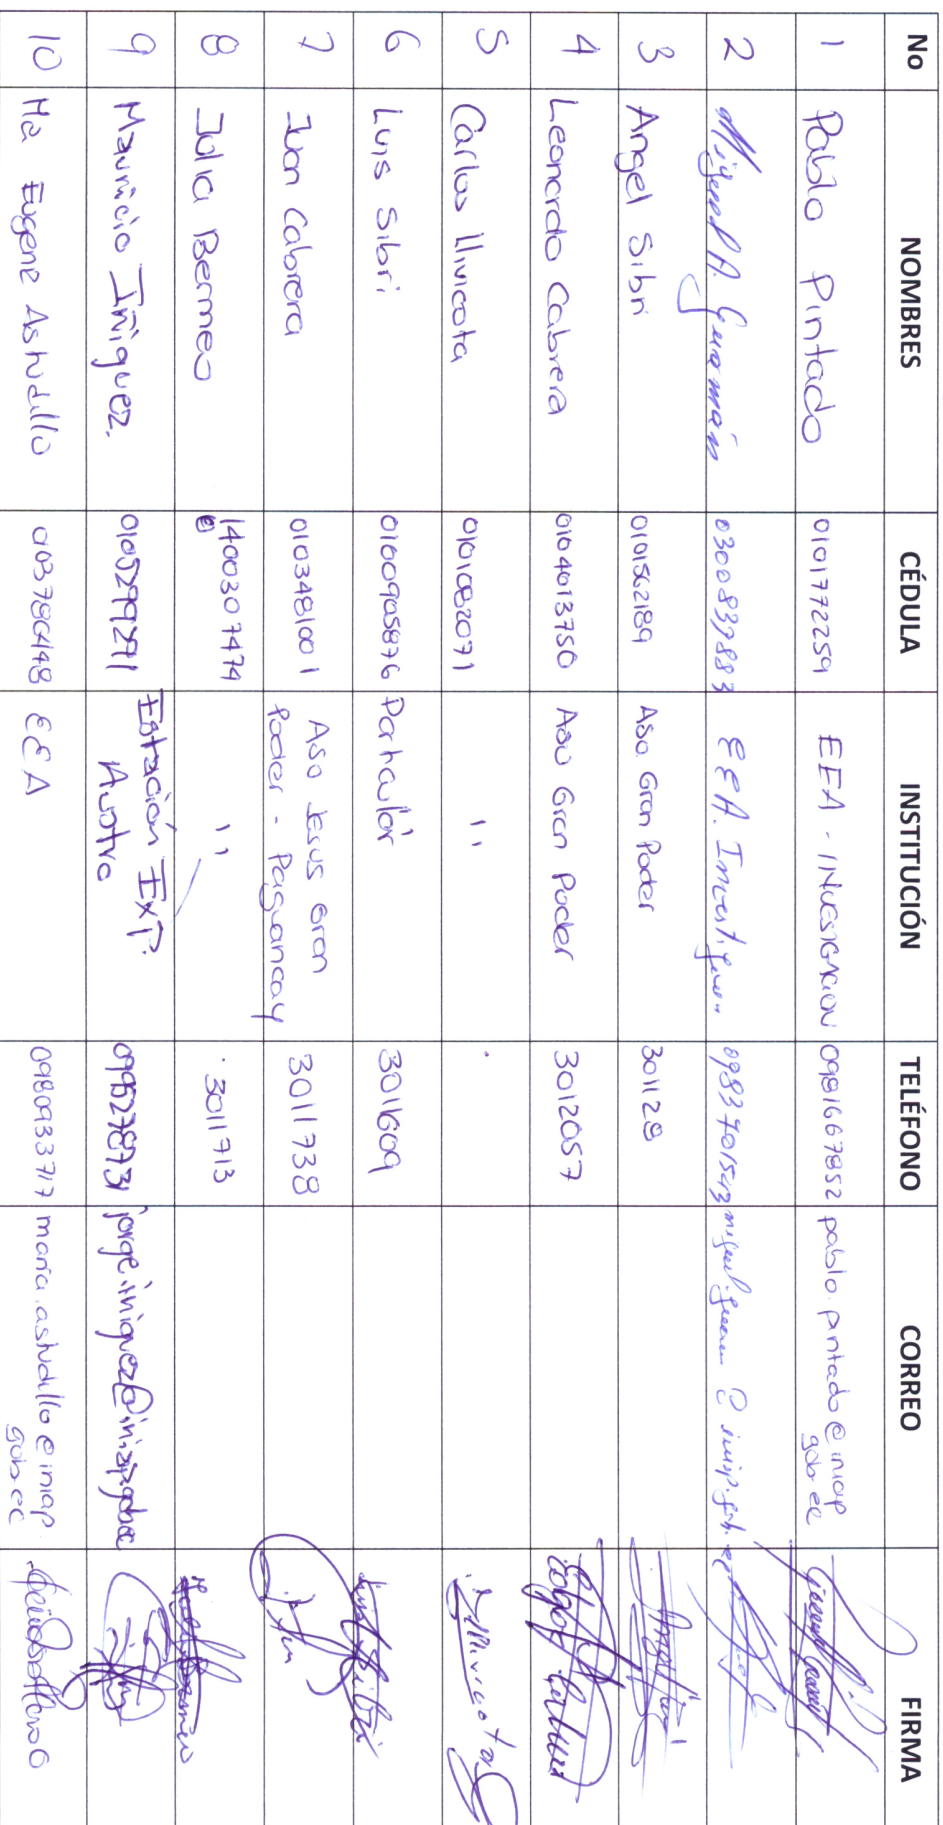 No NOMBRES CÉDULA INSTITUCIÓN TELÉFONO CORREO FIRMA
1 Pablo Pintado 0101772259 EEA - INVESTIGACION 0981667852 pablo.pintado@iniap
gob.ec
2 Miguel A. Guamán 0300839883 EEA. 
3 Angel Sibri 0101562189 Aso. Gran Poder 3011128
4 Leonardo Cabrera 0104013750 Aso Gran Poder 3012057
5 Carlos Llivicota 0101082071 "
6 Luis Sibri 0100905876 Particular 3011609
7 Juan Cabrera 0103481001 Aso Jesus Gran
Poder - Paguancay 3011738
8 Julia Bermeo 1400307474 " 3011713
9 Mauricio Iñiguez. 0105299291 Estación Exp.
Austro 099527873 jorge.iniguez@iniap.gob.ec
10 Ma Eugenia Astudillo 0103786148 EEA 0980933717 maria.astudillo@iniap.
gob.ec